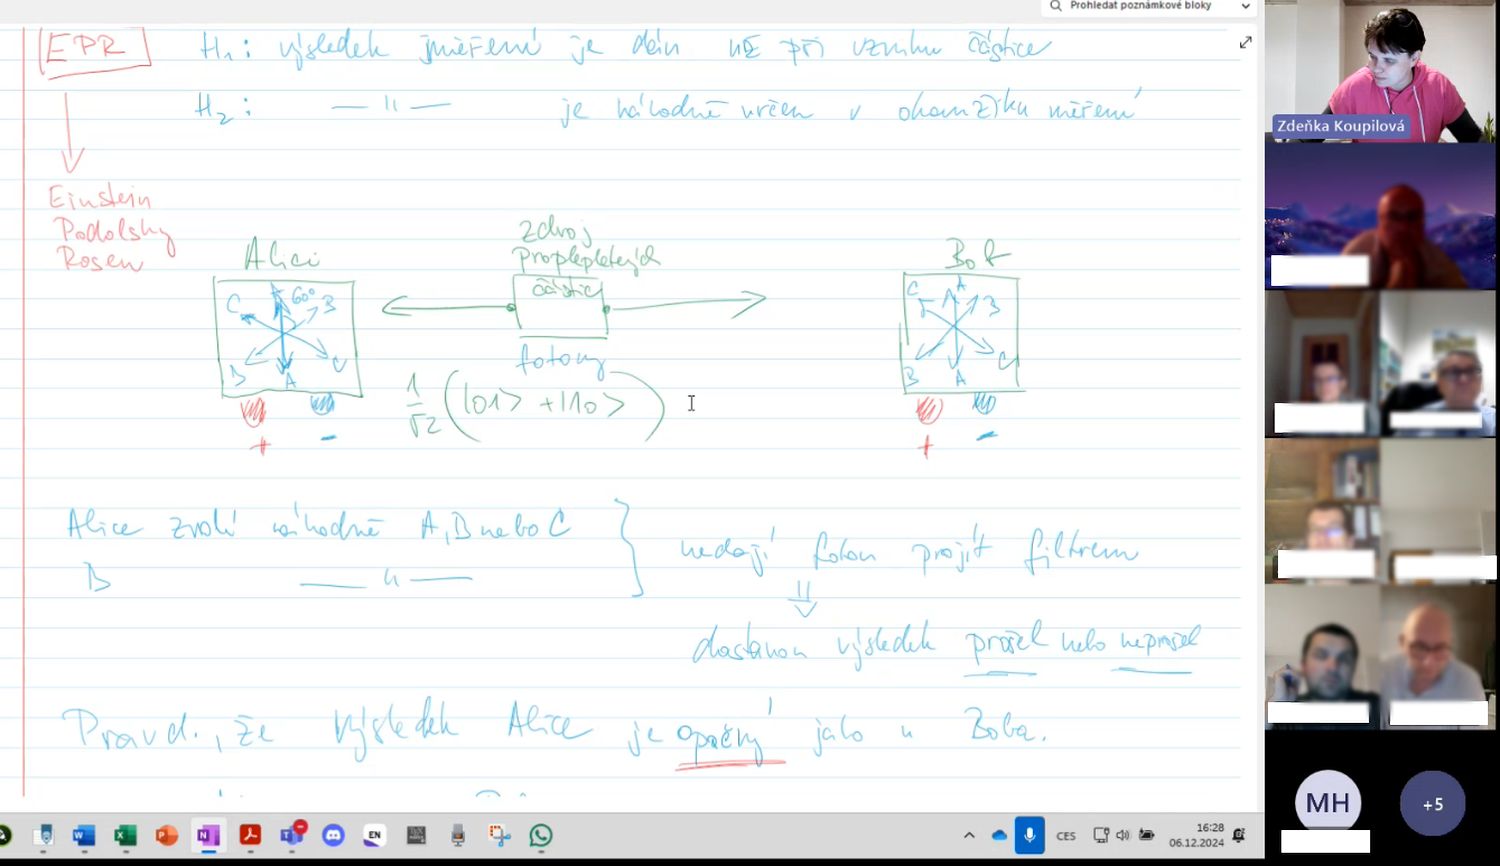 Prohledat poznámkové bloky
EPR
H₁: výsledek měření je dán už při vzniku částice
H₂: —— " —— je náhodně určen v okamžiku měření
Einstein
Podolsky
Rosen
Alice
zdroj
proplepletených
částic
fotony
Bob
C A 60° B
B A C
+ -
1/√2 (|01> + |10>)
C A B
B A C
+ -
Alice zvolí náhodně A, B nebo C
B —— " ——
nedají foton projít filtrem
⇓
dostanou výsledek prošel nebo neprošel
Pravd., že výsledek Alice je opačný jako u Boba.
Zdeňka Koupilová
MH
+5
EN
CES
16:28
06.12.2024